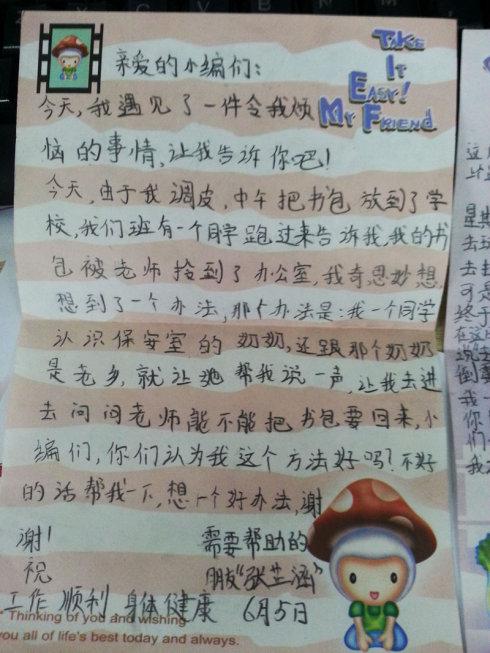 TAKE
IT
EASY!
MY FRIEND
亲爱的小编们:
今天,我遇见了一件令我烦
恼的事情,让我告诉你吧!
今天,由于我调皮,中午把书包放到了学
校,我们班有一个同学跑过来告诉我,我的书
包被老师拎到了办公室,我奇思妙想,
想到了一个办法,那个办法是:我一个同学
认识保安室的奶奶,还跟那个奶奶
是老乡,就让她帮我说一声,让我去进
去问问老师能不能把书包要回来,小
编们,你们认为我这个方法好吗?不好
的话帮我一下,想一个好办法,谢
谢! 需要帮助的
祝 朋友“张芷涵”
工作顺利 身体健康 6月5日
Thinking of you and wishing
you all of life's best today and always.